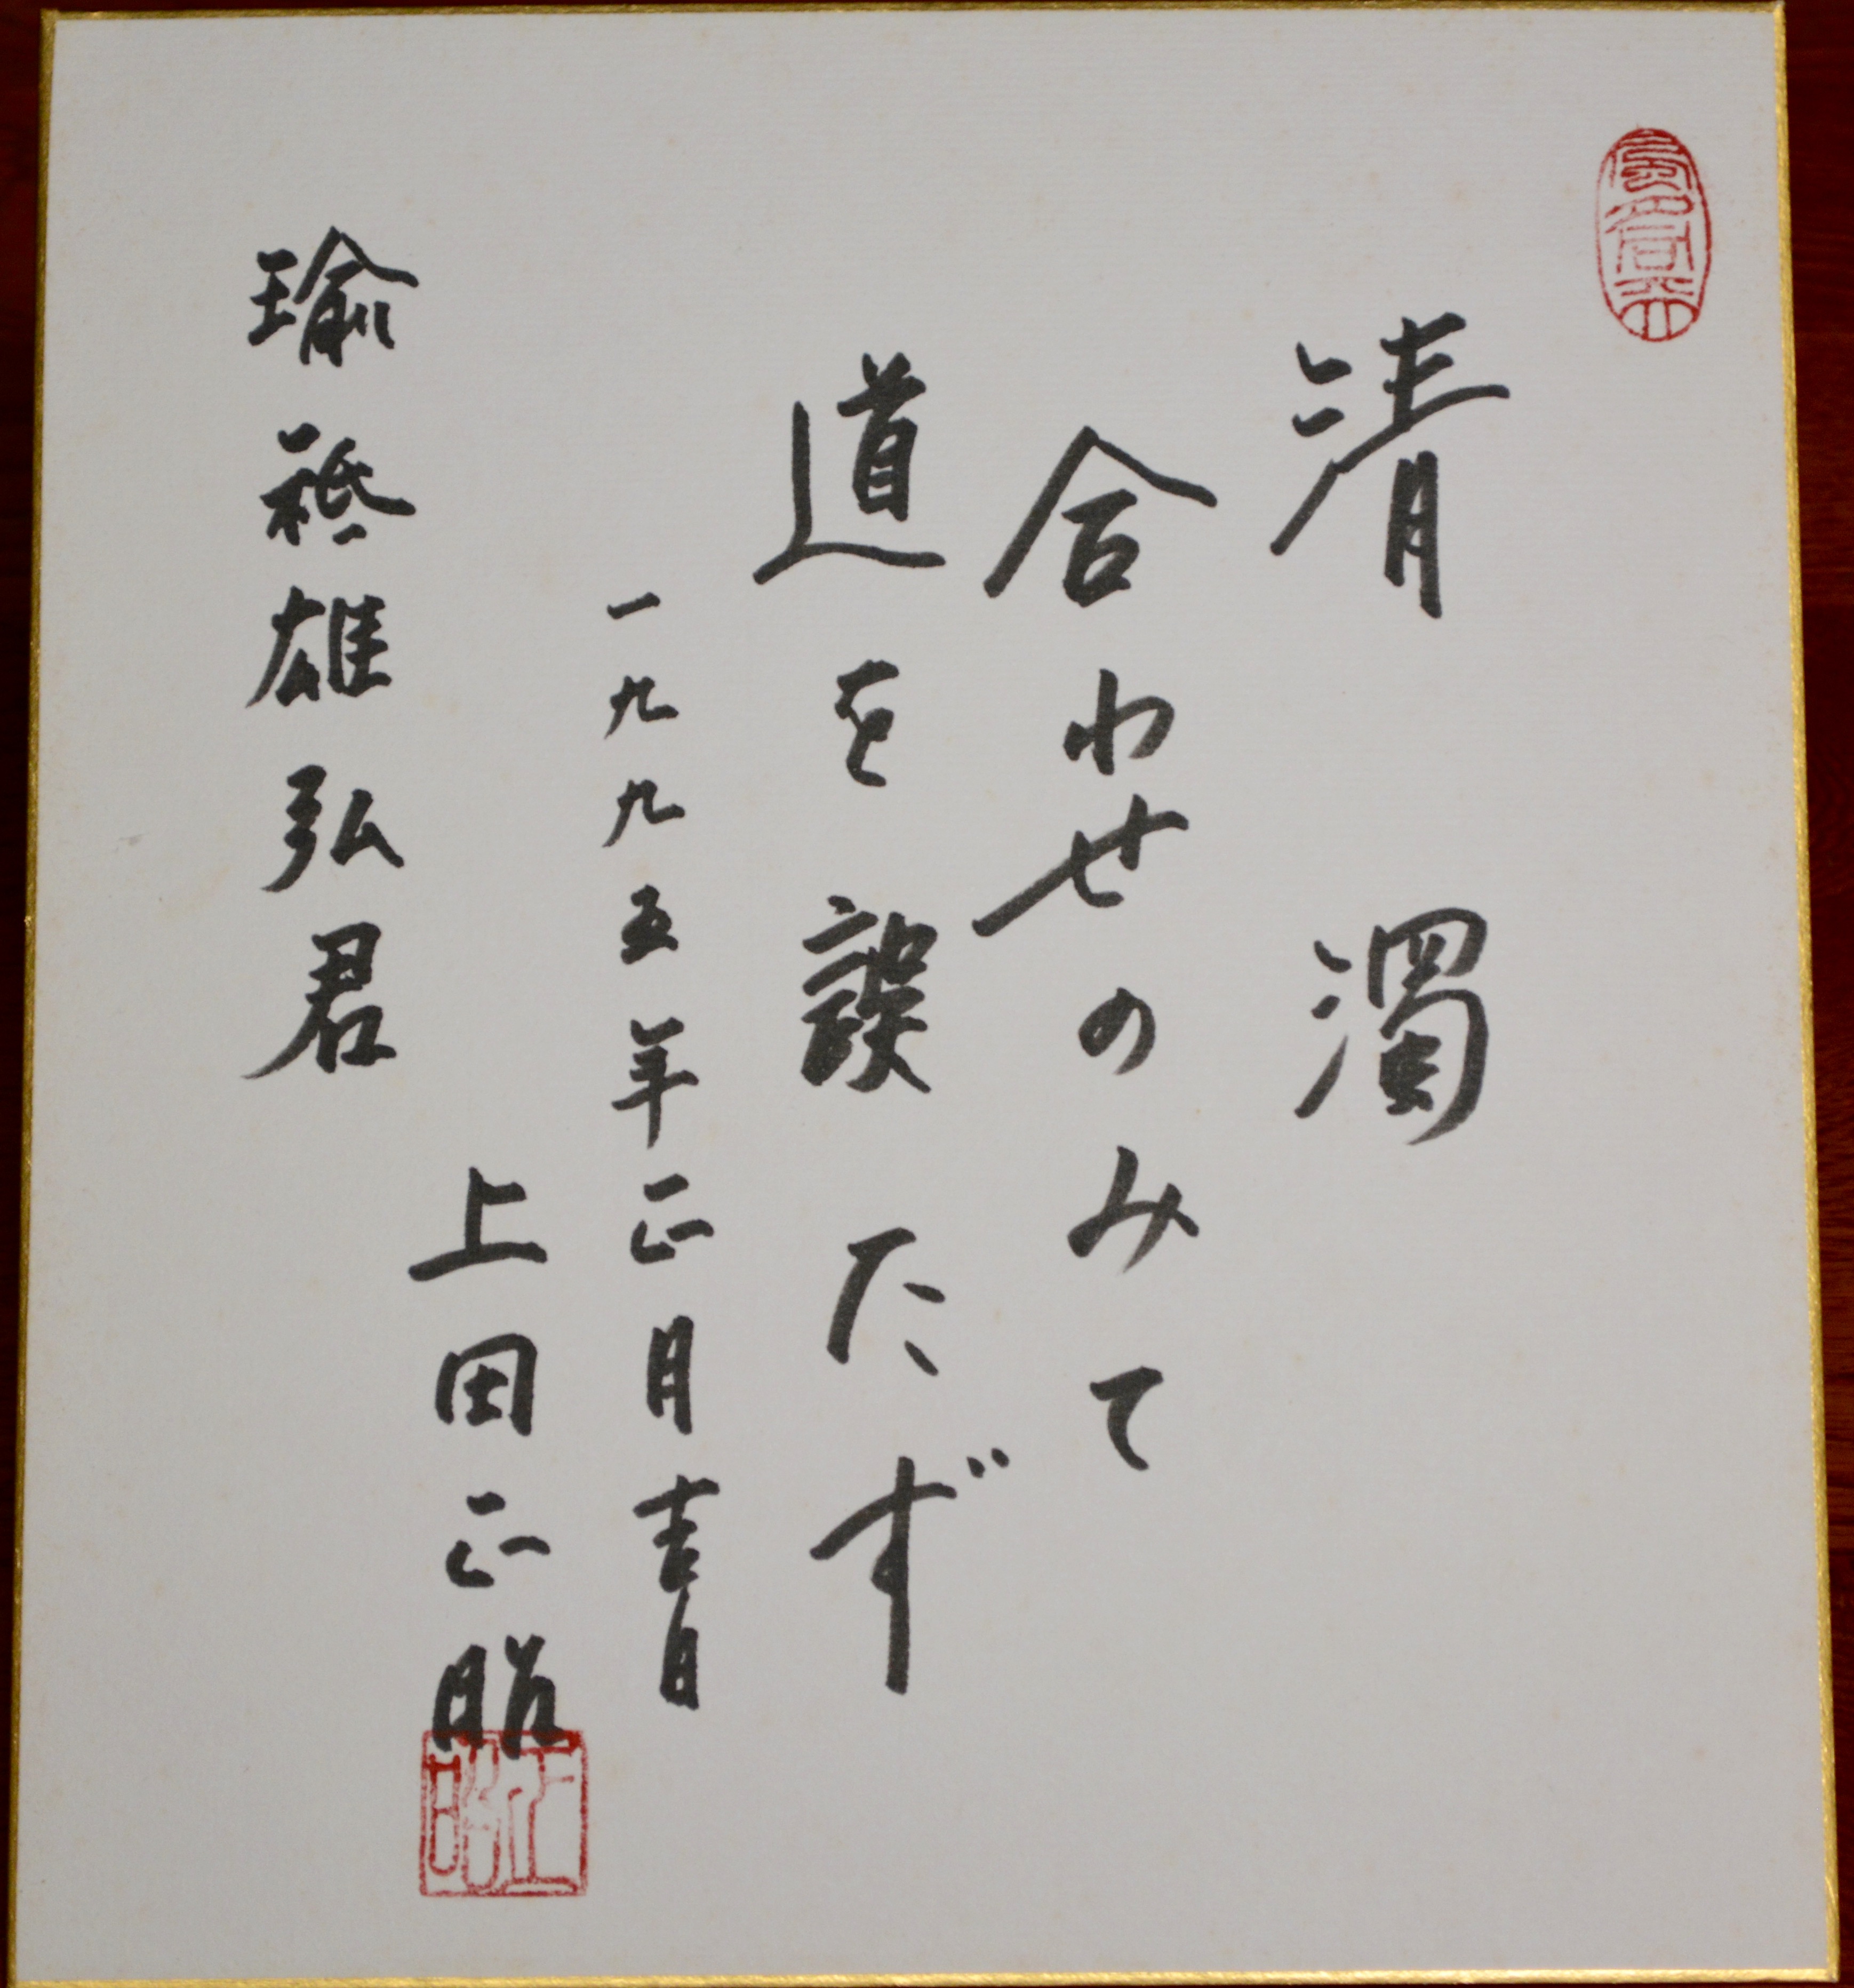 清濁
合わせのみて
道を誤たず
一九九五年正月吉日
上田正昭
瑜祗雄弘君
正昭